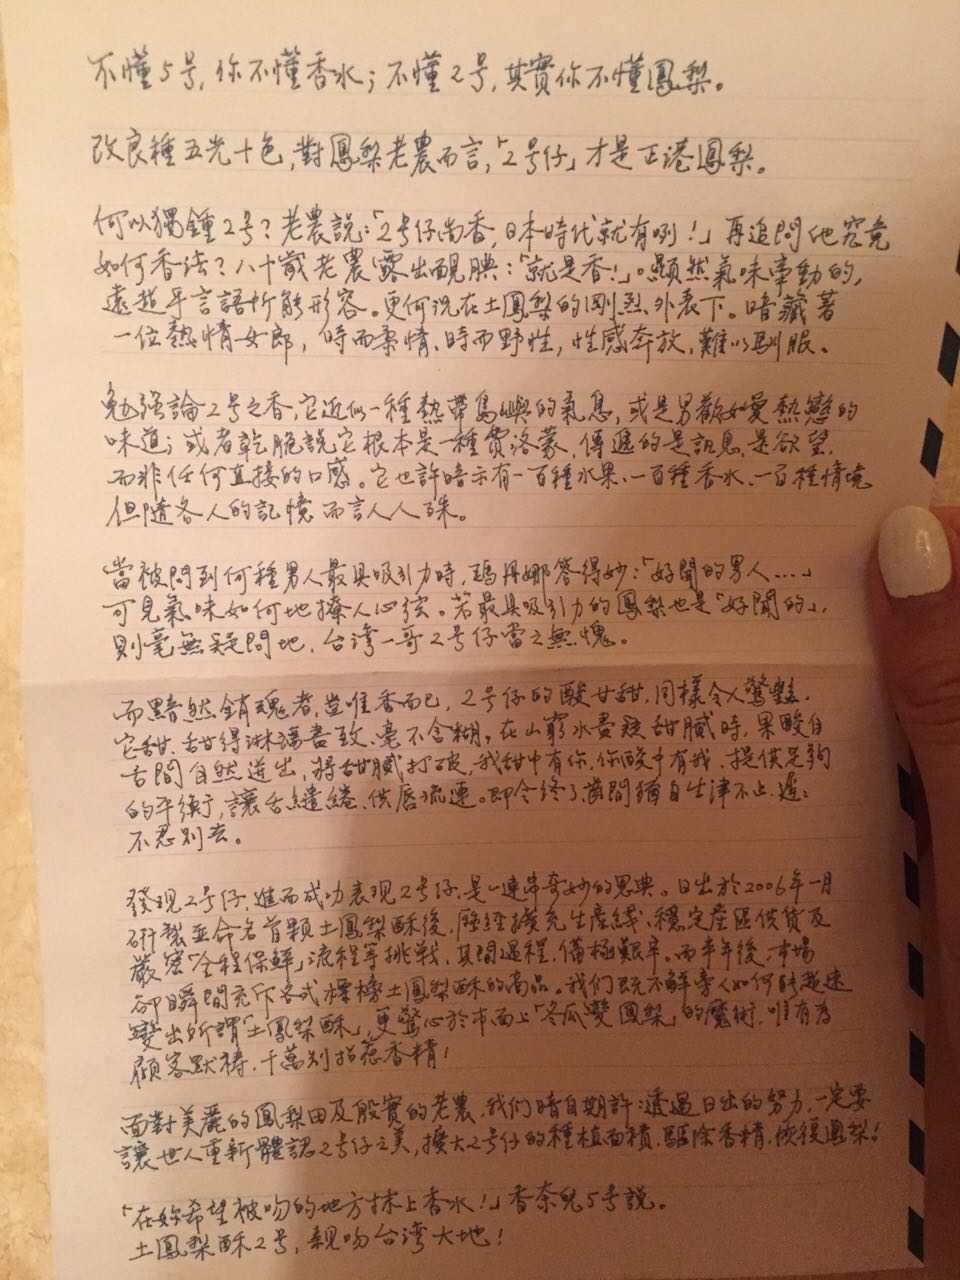 不懂5号，你不懂香水；不懂2号，其實你不懂鳳梨。
改良種五光十色，對鳳梨老農而言，「2号仔」才是正港鳳梨。
何以獨鍾2号？老農說：「2号仔尚香，日本時代就有咧！」再追問他究竟
如何香法？八十歲老農露出靦腆：「就是香！」。顯然氣味牽動的，
遠超乎言語所能形容。更何況在土鳳梨的剛烈外表下。暗藏著
一位熱情女郎，時而柔情、時而野性，性感奔放，難以馴服、
勉強論2号之香，它近似一種熱帶島嶼的氣息，或是男歡女愛熱戀的
味道；或者乾脆說它根本是一種費洛蒙，傳遞的是訊息，是欲望，
而非任何直接的口感。它也許暗示有一百種水果、一百種香水、一百種情境
但隨各人的記憶而言人人殊。
當被問到何種男人最具吸引力時，瑪丹娜答得妙：「好聞的男人……」
可見氣味如何地撩人心弦。若最具吸引力的鳳梨也是「好聞的」，
則毫無疑問地，台湾一哥2号仔當之無愧。
而黯然銷魂者，豈唯香而已，2号仔的酸甘甜，同樣令人驚豔、
它甜、甜得淋漓盡致、毫不含糊。在山窮水盡疑甜膩時，果酸自
舌間自然迸出，將甜膩打破，我甜中有你，你酸中有我、提供足夠
的平衡，讓舌繾綣、供唇流連。即令終了，齒間猶自生津不止、遲遲
不忍別去。
發現2号仔，進而成功表現2号仔，是一連串奇妙的恩典。日出於2006年一月
研製並命名首顆土鳳梨酥後，歷經擴充生產线、穩定產區供貨及
嚴密「全程保鮮」流程等挑战，其間過程，備極艱辛。而半年後，市場
卻瞬間充斥各式標榜土鳳梨酥的商品。我们既不解旁人如何能超速
變出所謂「土鳳梨酥」，更驚心於市面上「冬瓜變鳳梨」的魔術，唯有為
顧客默禱，千萬別招惹香精！
面對美麗的鳳梨田及殷實的老農，我们暗自期許：透過日出的努力，一定要
讓世人重新體認2号仔之美，擴大2号仔的種植面積，驅除香精，恢復鳳梨！
「在妳希望被吻的地方抹上香水！」香奈兒5号說。
土鳳梨酥2号，親吻台湾大地！